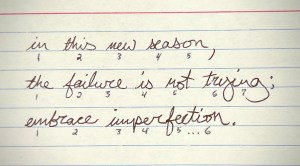 in this new season,
1 2 3 4 5
the failure is not trying;
1 2 3 4 5 6 7
embrace imperfection.
1 2 3 4 5 ... 6